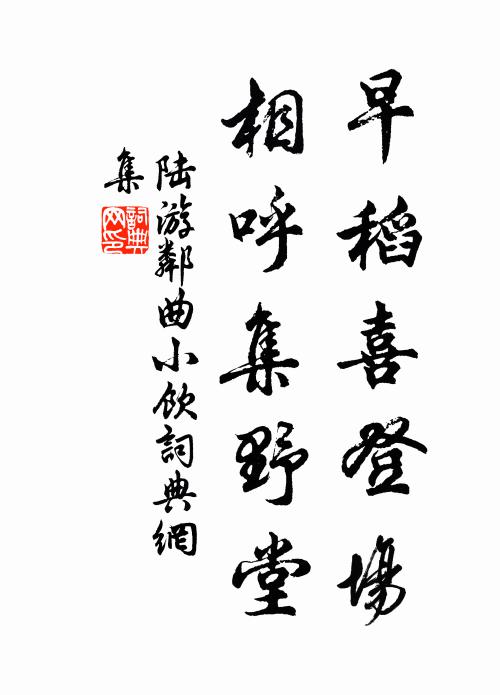 早稻喜登場
相呼集野堂
陸游鄰曲小飲詞典網
集
詞典
网印